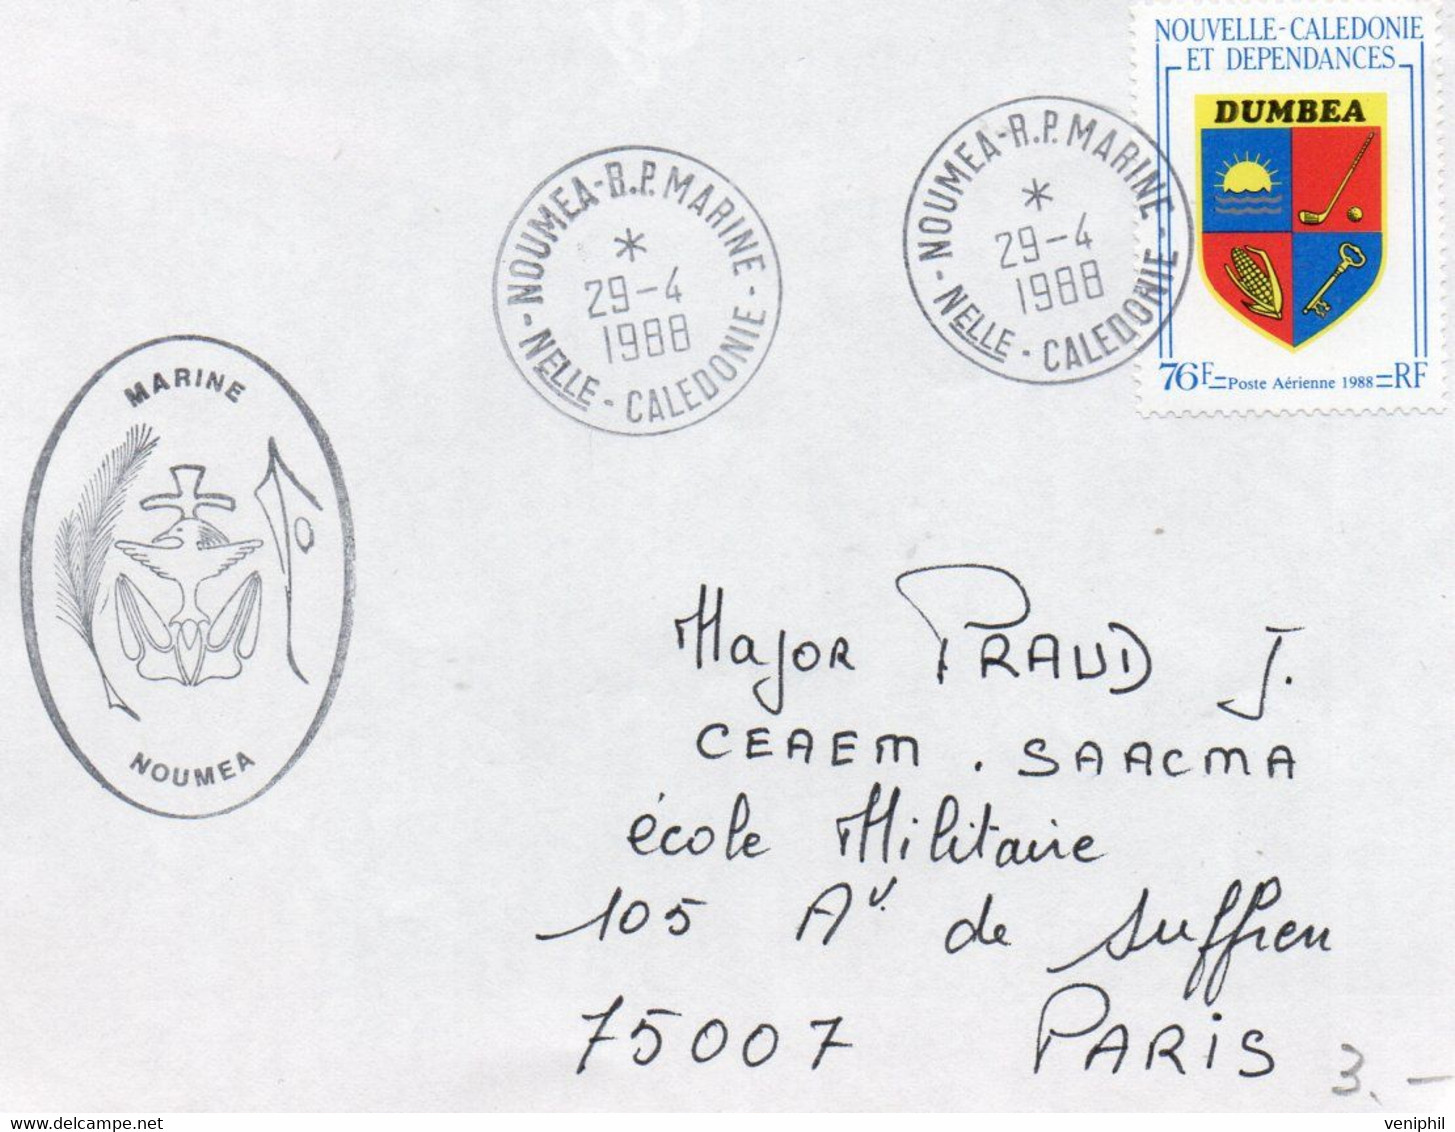 NOUVELLE-CALEDONIE
ET DEPENDANCES
DUMBEA
76F Poste Aérienne 1988 RF
NOUMEA-R.P. MARINE
*
29-4
1988
- NELLE - CALEDONIE -
NOUMEA-R.P. MARINE
*
29-4
1988
- NELLE - CALEDONIE -
MARINE
NOUMEA
Major PRAUD J.
CEAEM . SAACMA
école Militaire
105 Av. de Suffren
75007 PARIS
3. -
veniphil